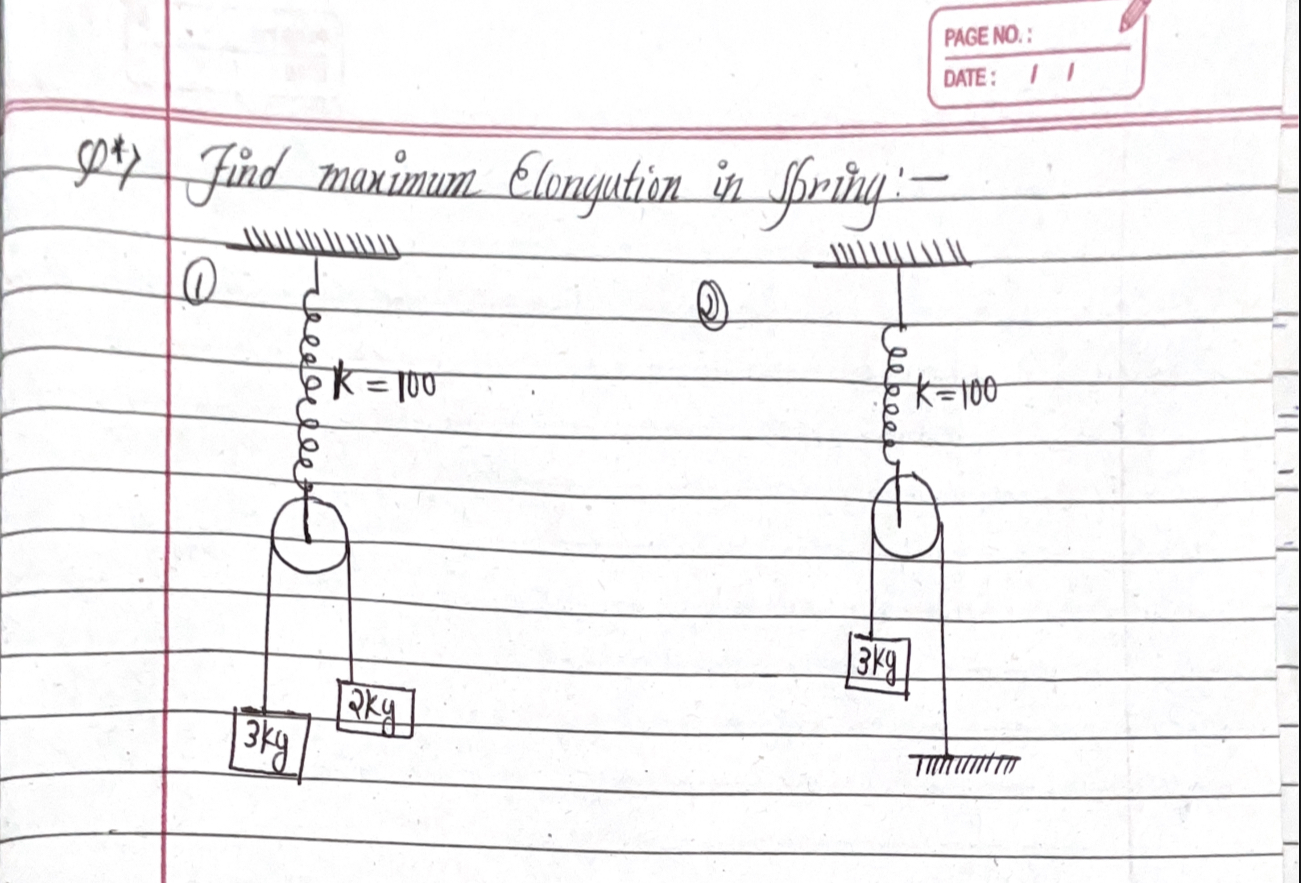 PAGE NO.:
DATE: / /
Q*> Find maximum Elongution in Spring:-
① ②
K = 100 K=100
3kg
2kg
3kg